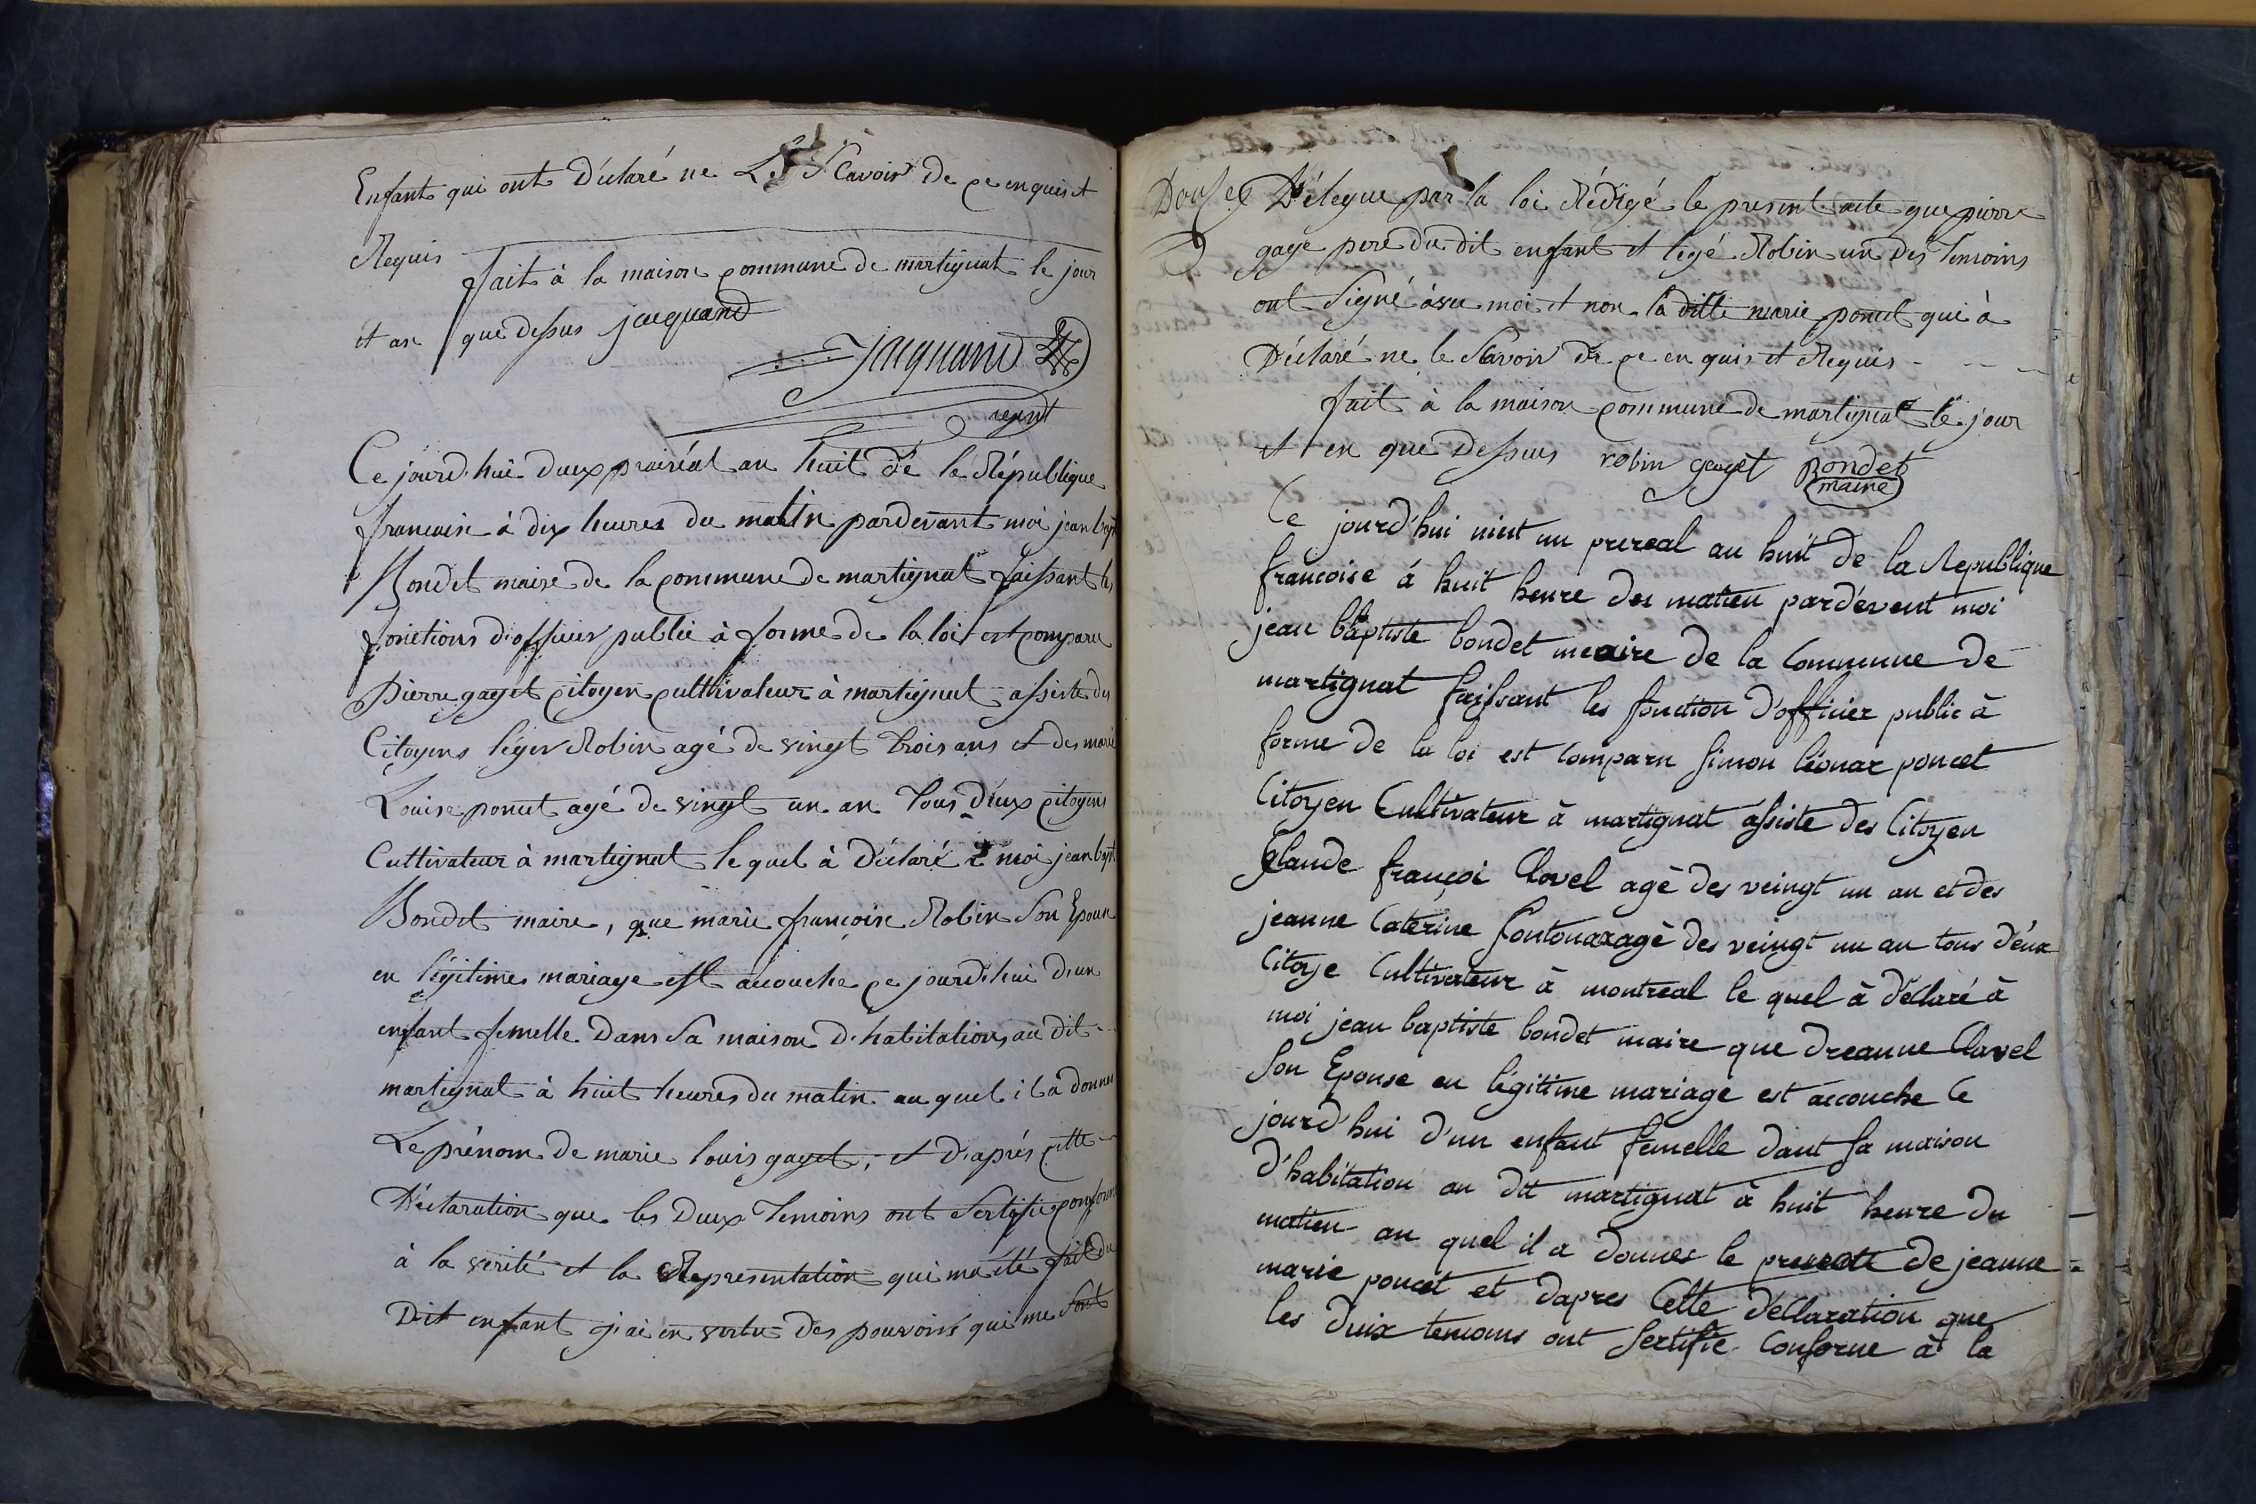 Enfant qui ont Déclaré ne Le Scavoir de ce enquis et
Requis
fait à la maison commune de martignat le jour
et an que dessus jacquand
jacquand
agent
Ce jourd'hui deux prairéal an huit dé la République
francaise à dix heures du matin pardevant moi jean bapt
Bondet maire de la commune de martignat faissant les
fonctions d'officier public à forme de la loi est comparu
Pierre gayet citoyen cultivateur à martignat assisté des
Citoyens léger Robin agé de vingt trois ans et de marie
Louise poncet agé de vingt un an tous deux citoyens
Cultivateur à martignat le quel à déclaré à moi jean bapt
Bondet maire, que marie françoise Robin Son Epouse
en légitimes mariage est accouche ce jourd'hui d'un
enfant femelle Dans Sa maison d'habitation, au dit
martignat à huit heures du matin au quel il a donner
Le prénom de marie louis gayet, et d'aprés cette
Déclaration que les Deux Temoins ont Sertifié conforme
à la verité et la Representation qui ma été fait du
Dit enfant j'ai en vertu des pouvoirs qui me Sont
Douse
Délegue par la loi Rédigé le present acte que pierre
gaye pere du dit enfant et legé Robin un des Temoins
ont Signé avec moi et non la ditte marie poncet qui à
Déclaré ne le Savoir de ce en quis et Requis
fait à la maison commune de martignat le jour
et en que dessus robin gayet Bondet
maire
Ce jourd'hui vint un prereal an huit de la Republique
francoise á huit heure des matien pardévent moi
jean baptiste bondet meaire de la Commune de
martignat faissant les fonction d'officier public à
forme de la loi est comparu Simon léonar poncet
Citoyen Cultivateur à martignat assiste des Citoyen
Glaude françoi Clovel agè des veingt un an et des
jeanne Caterine fontouaragè des veingt un an tous déux
Citoye Cultiverteur à montreal le quel à déclaré à
moi jean baptiste bondet maire que dreanne Clavel
Son Epouse en légitime mariage est accouche Ce
jourd'hui d'un enfant femelle dant Sa maison
d'habitation au dit martignat à huit heure du
matien au quel il a donner le de jeanne
marie poncet et dapres Cette déclaration que
les duix temoins ont Sertifie Conforne à la